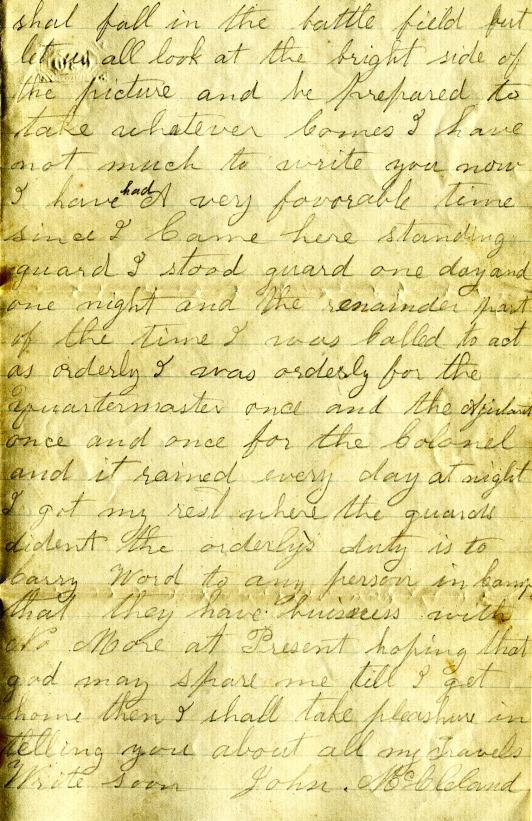 shal fall in the battle field but
let us all look at the bright side of
the picture and be prepared to
take whatever Comes I have
not much to write you now
I have had A very favorable time
since I Came here standing
guard I stood guard one day and
one night and the renainder part
of the time I was Called to act
as orderly I was orderly for the
Quartermaster once and the Ajutant
once and once for the Colonel
and it rained every day at night
I got my rest where the guards
dident the orderly's duty is to
Carry Word to any person in Camp
that they have buisness with
No More at Present hoping that
god may spare me till I get
home then I shall take pleashure in
telling you about all my travels
Write soon John. McCleland